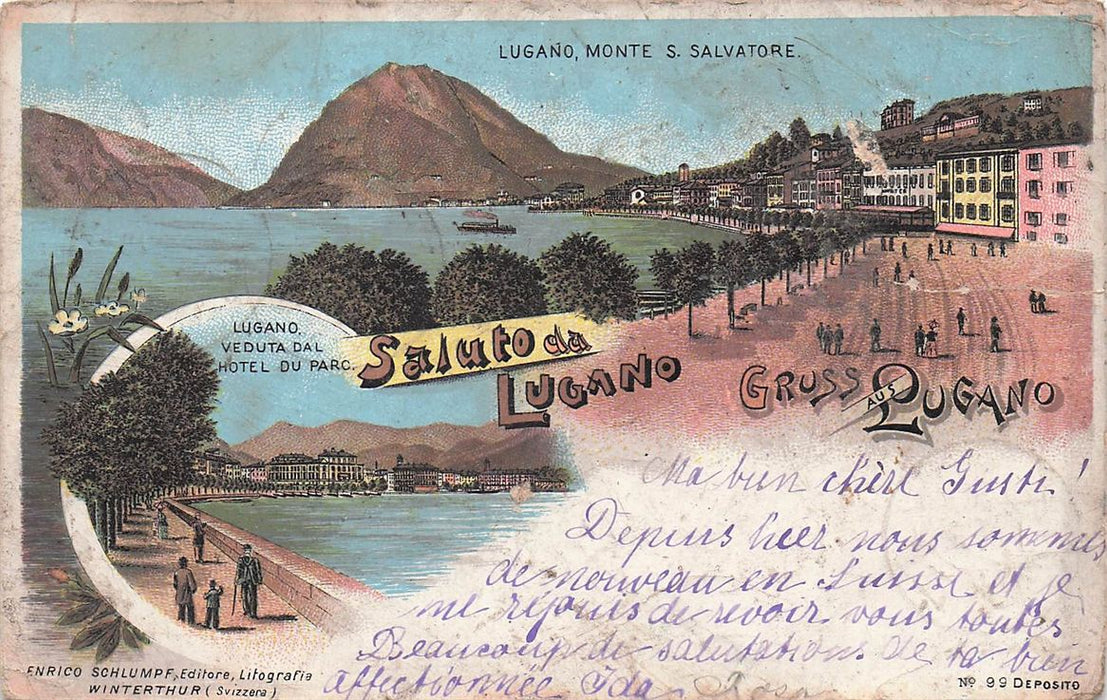 LUGANO, MONTE S. SALVATORE.
LUGANO,
VEDUTA DAL
HOTEL DU PARC.
Saluto da
LUGANO
GRUSS AUS LUGANO
Ma bien chère Gusti!
Depuis hier nous sommes
de nouveau en Suisse et je
me réjouis de revoir vous toutes
Beaucoup de salutations de ta bien
affectionnée Ida Rosa
ENRICO SCHLUMPF, Editore, Litografia
WINTERTHUR (Svizzera)
No 99 DEPOSITO